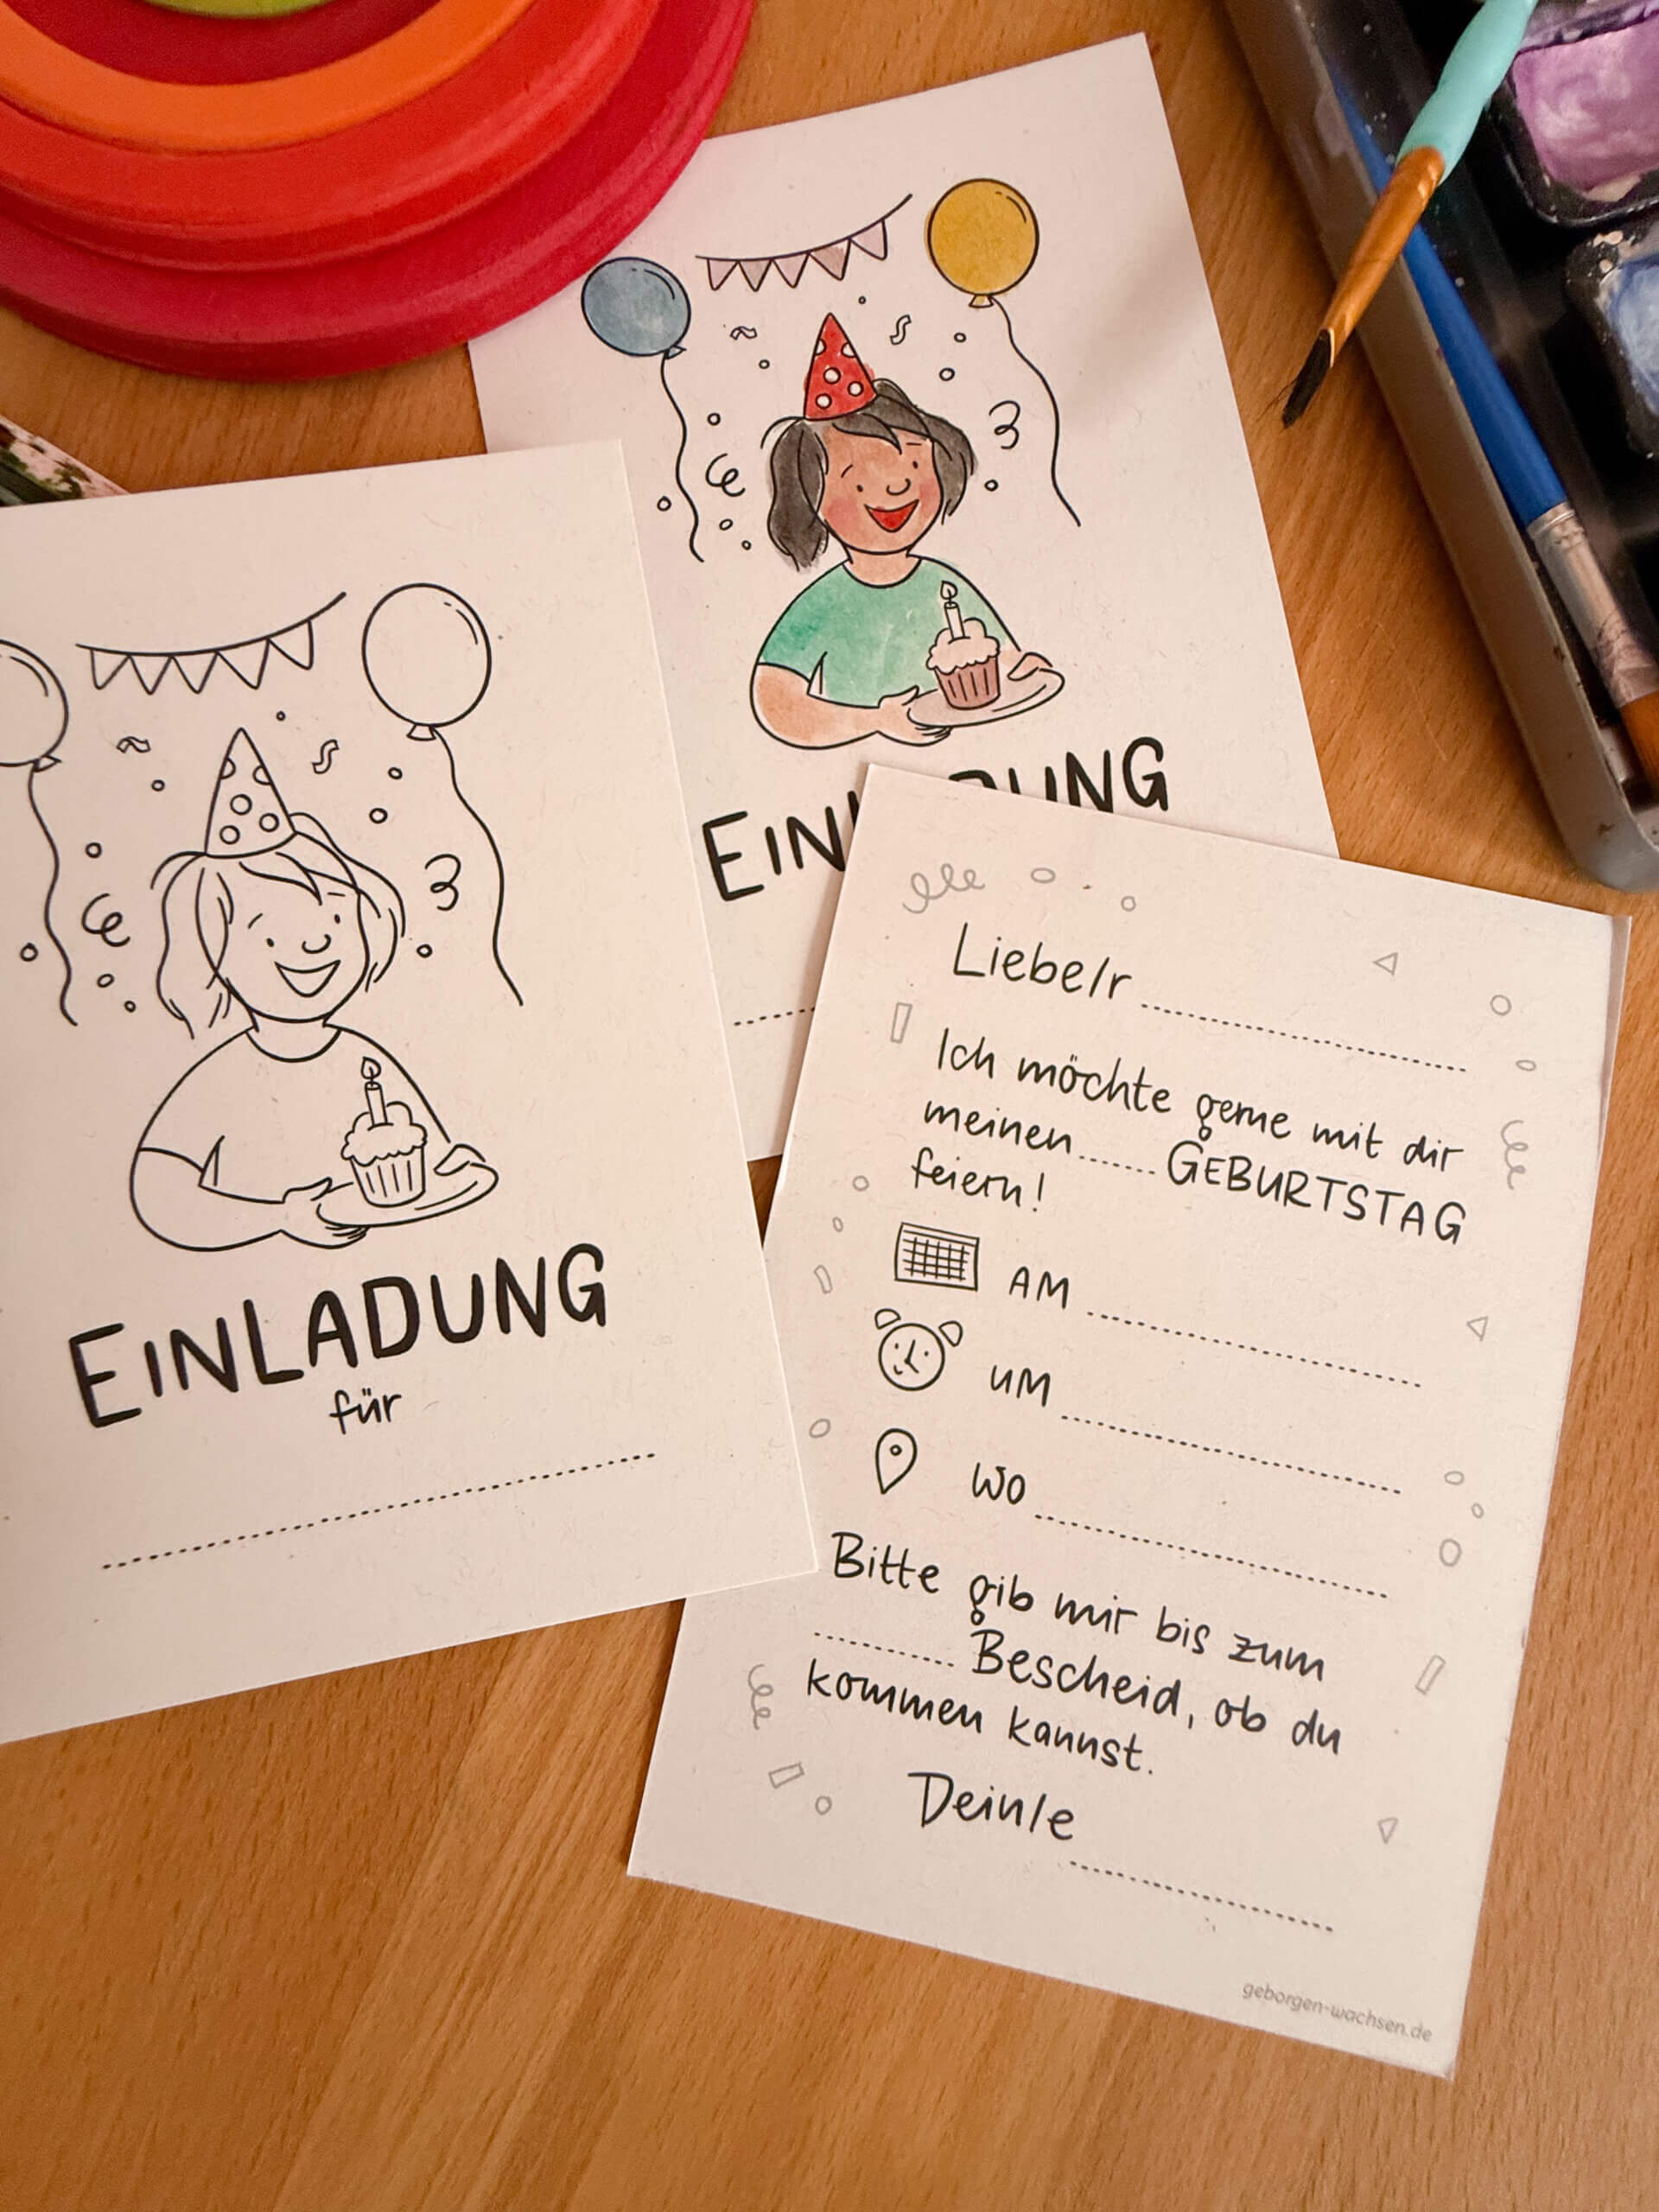 EINLADUNG
für
EIN DUNG
Liebe/r
Ich möchte gerne mit dir
meinen GEBURTSTAG
feiern!
AM
UM
WO
Bitte gib mir bis zum
Bescheid, ob du
kommen kannst.
Dein/e
geborgen-wachsen.de